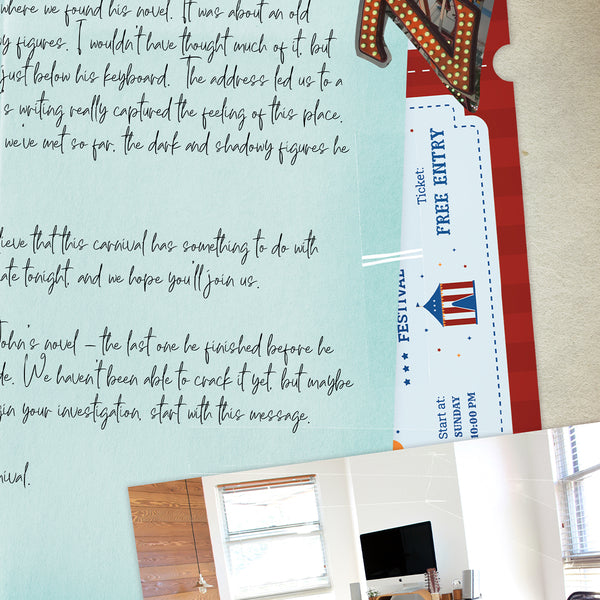 where we found his novel. It was about an old
figures. I wouldn't have thought much of it, but
just below his keyboard. The address led us to a
s writing really captured the feeling of this place.
we've met so far, the dark and shadowy figures he
lieve that this carnival has something to do with
ate tonight, and we hope you'll join us.
John's novel – the last one he finished before he
de. We haven't been able to crack it yet, but maybe
gin your investigation, start with this message.
nival.
Ticket:
FREE ENTRY
FESTIVAL
Start at:
SUNDAY
10:00 PM